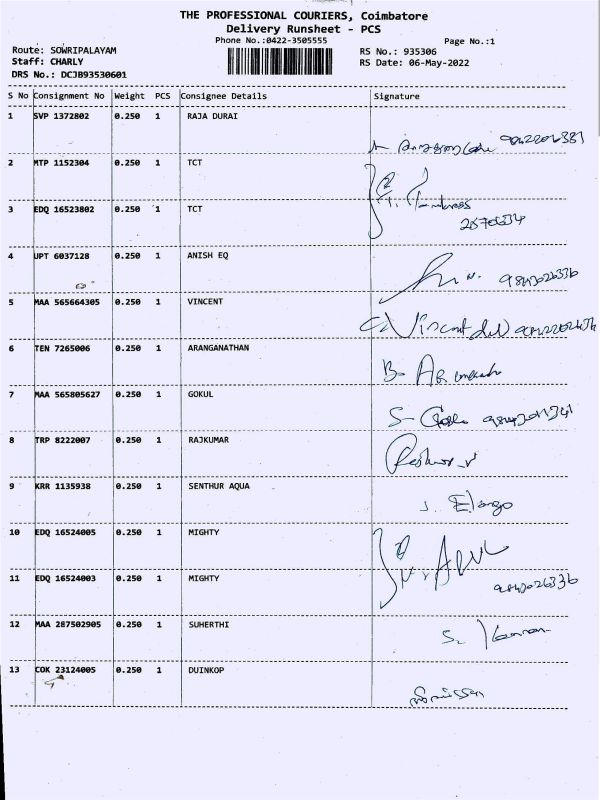 THE PROFESSIONAL COURIERS, Coimbatore
Delivery Runsheet - PCS
Phone No.:0422-3505555
Page No.:1
Route: SOWRIPALAYAM
RS No.: 935306
Staff: CHARLY
RS Date: 06-May-2022
DRS No.: DCJB93530601
S No Consignment No Weight PCS Consignee Details Signature
1 SVP 1372802 0.250 1 RAJA DURAI
2 MTP 1152304 0.250 1 TCT
3 EDQ 16523802 0.250 1 TCT
4 JPT 6037128 0.250 1 ANISH EQ
9843026336
5 MAA 565664305 0.250 1 VINCENT
C. Vincent
6 TEN 7265006 0.250 1 ARANGANATHAN
B.
7 MAA 565805627 0.250 1 GOKUL
S-
8 TRP 8222007 0.250 1 RAJKUMAR
9 KRR 1135938 0.250 1 SENTHUR AQUA
J. Elango
10 EDQ 16524005 0.250 1 MIGHTY
11 EDQ 16524003 0.250 1 MIGHTY
9843026336
12 MAA 287502905 0.250 1 SUHERTHI
S.
13 COK 23124005 0.250 1 DUINKOP